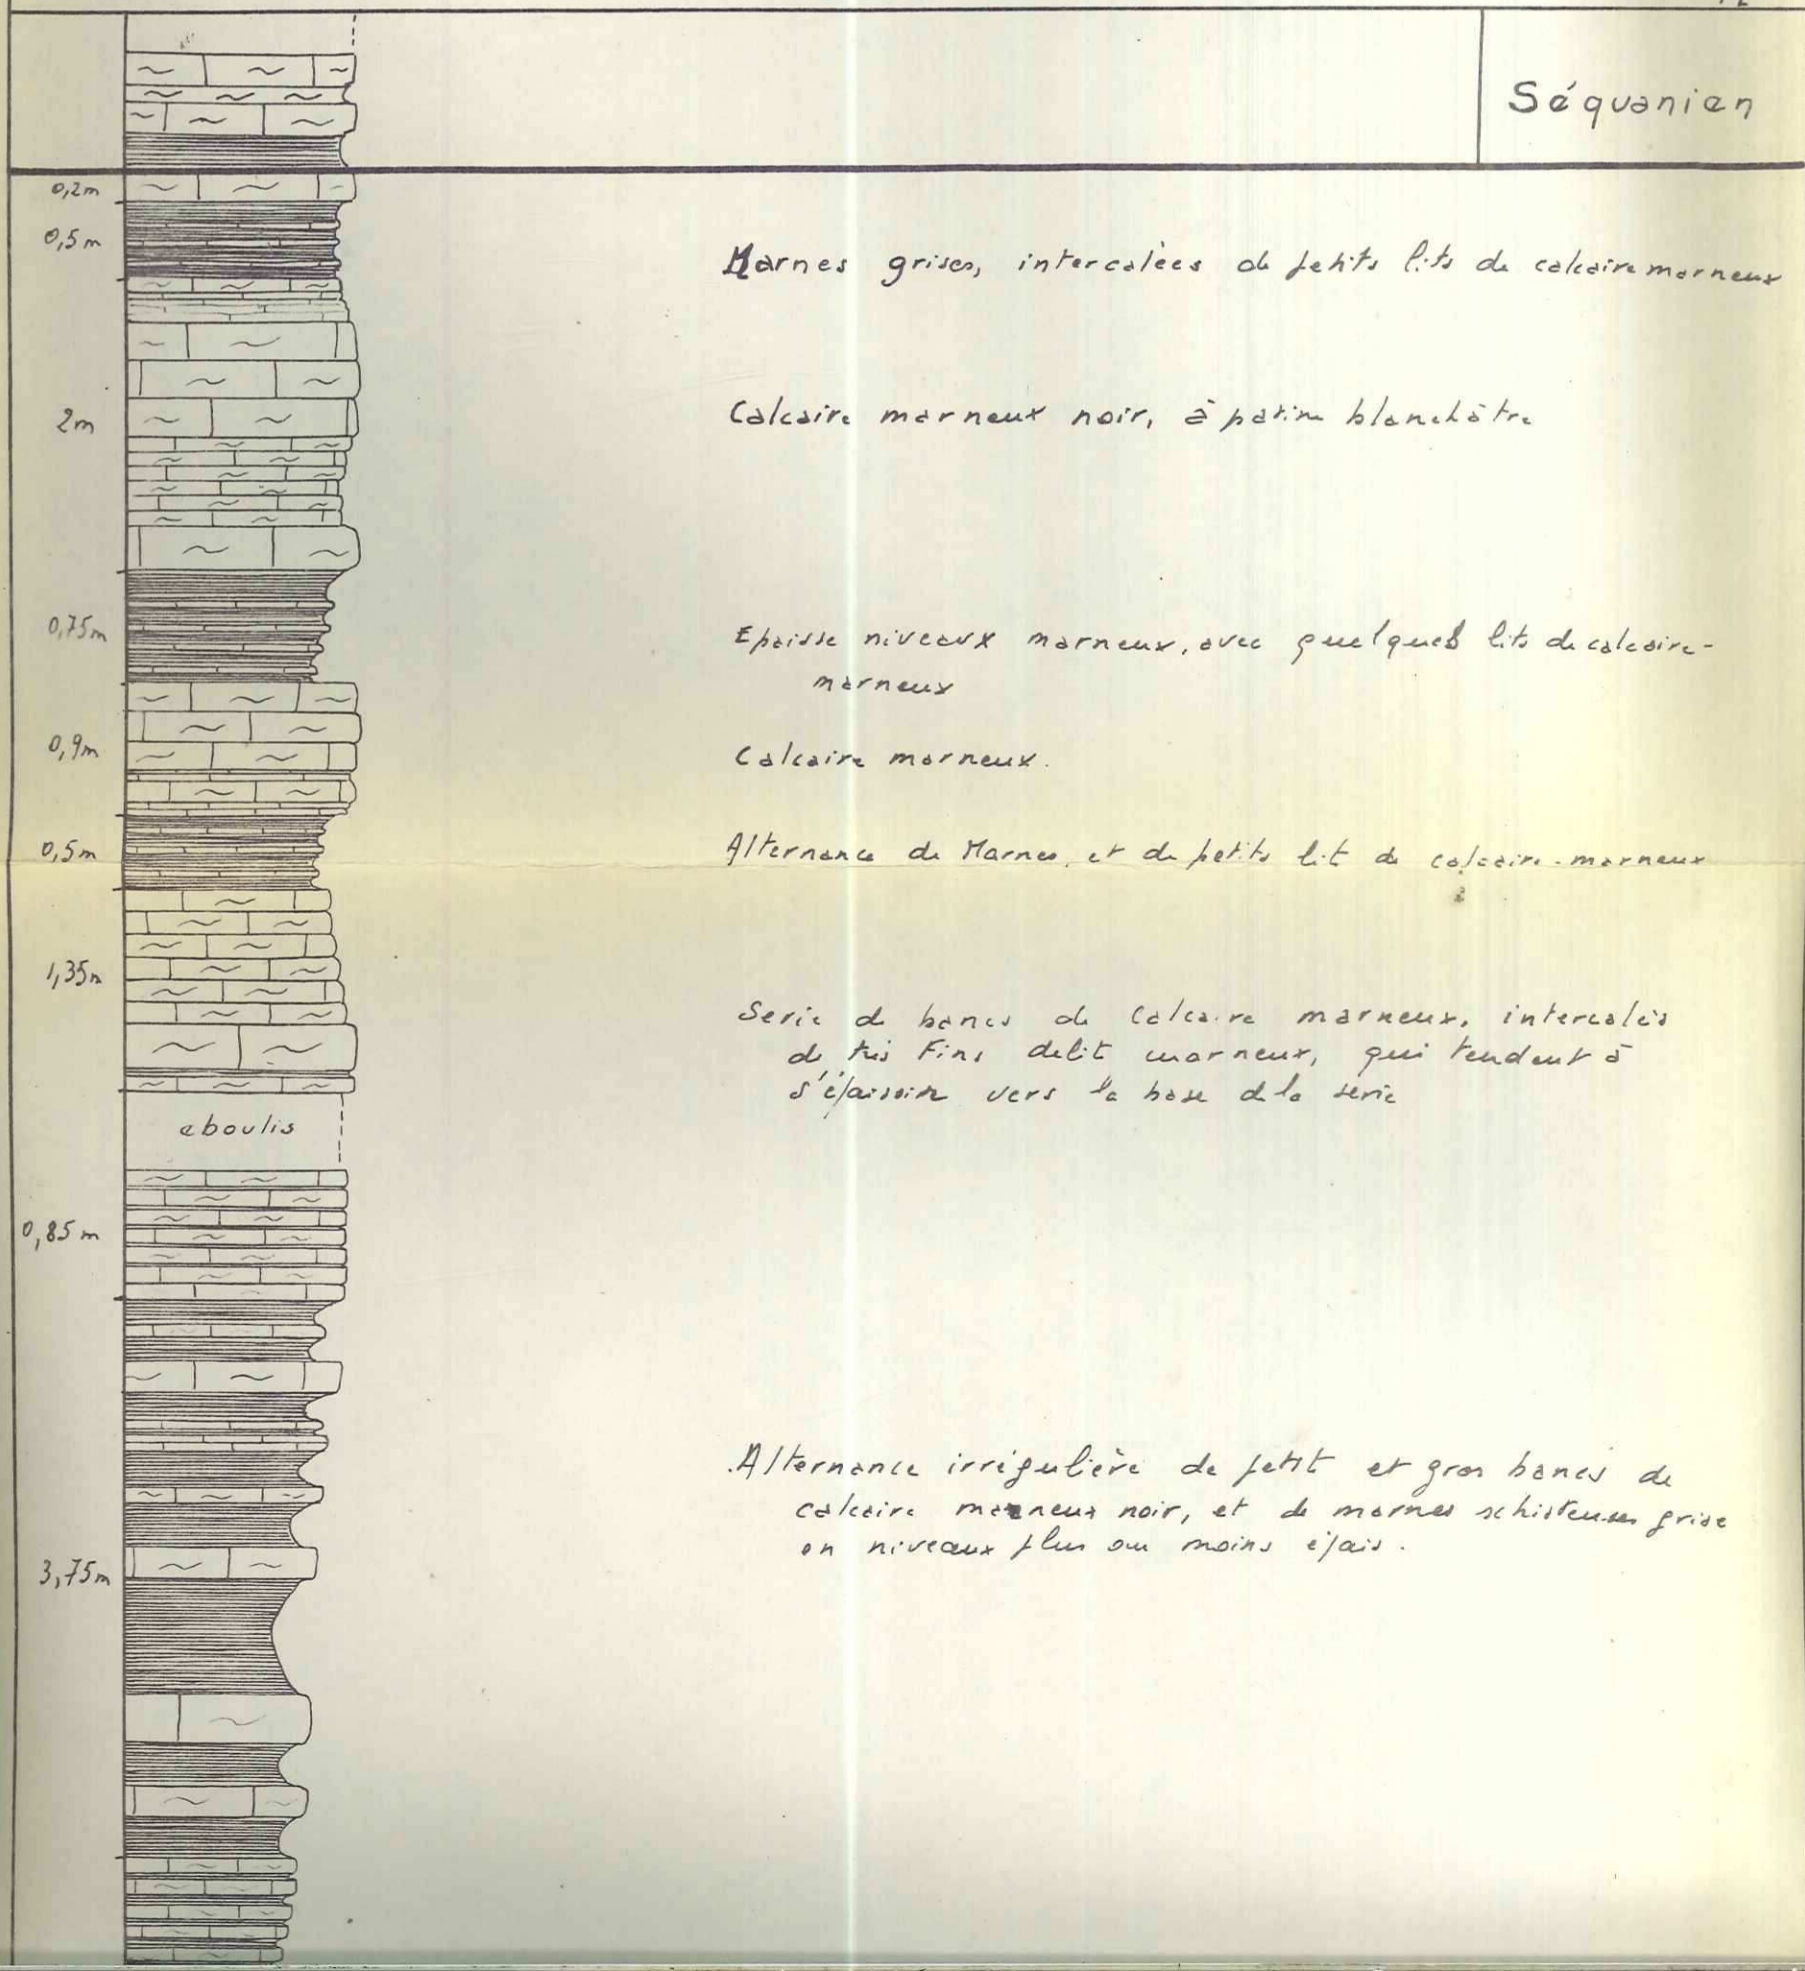 Séquanien
0,2m
0,5m
Marnes grises, intercalées de petits lits de calcaire marneux
2m
Calcaire marneux noir, à patine blanchâtre
0,75m
Epaisse niveaux marneux, avec quelques lits de calcaire-
marneux
0,9m
Calcaire marneux.
0,5m
Alternance de Marnes, et de petits lit de calcaire-marneux
1,35m
Serie de bancs de Calcaire marneux, intercalés
de très Fins delit marneux, qui tendent à
s'épaissir vers la base de la serie
eboulis
0,85m
Alternance irrégulière de petit et gros bancs de
calcaire marneux noir, et de marnes schisteuses grise
en niveaux plus ou moins épais.
3,75m